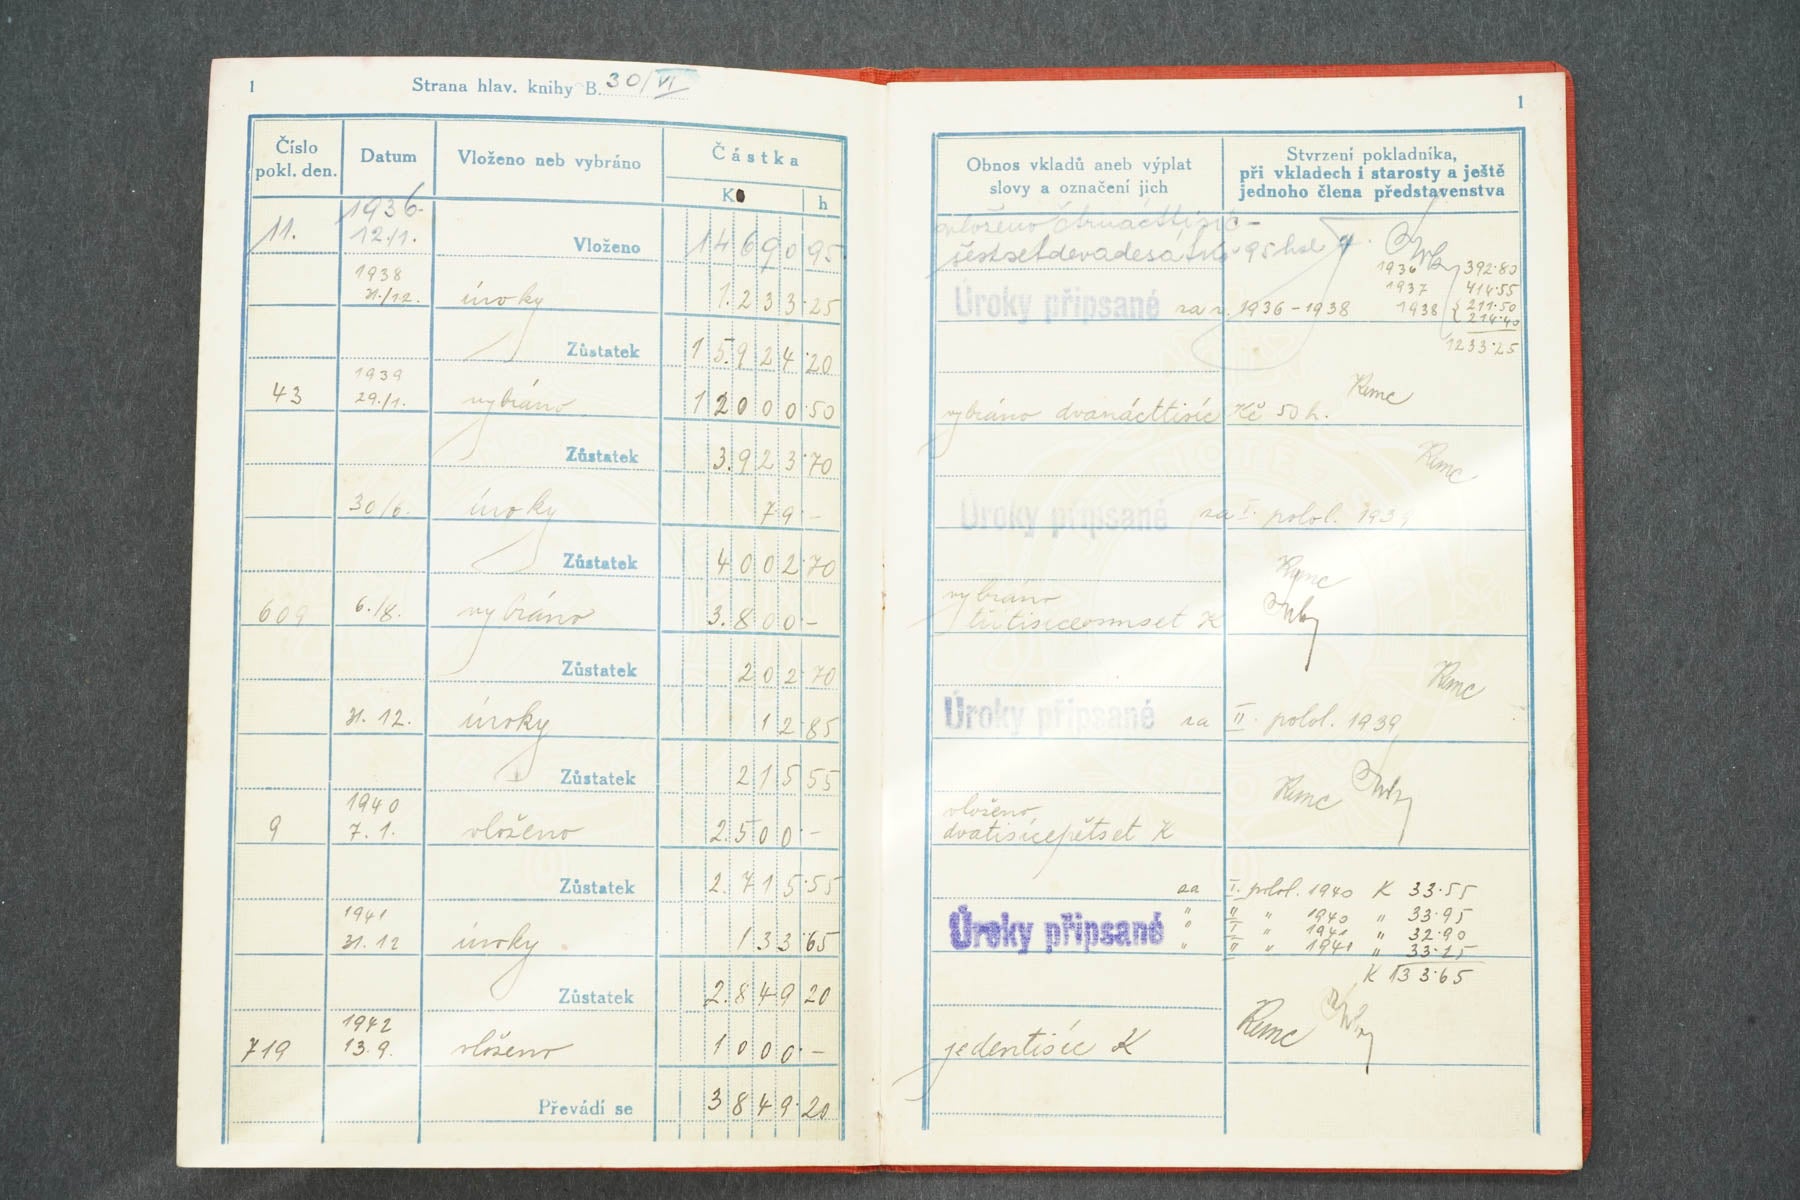 1
Strana hlav. knihy B. 30/VI
Číslo pokl. den.
Datum
Vloženo neb vybráno
Částka
K
h
11.
1936
12./1.
Vloženo
14690 95
1938
31./12.
úroky
1.233·25
Zůstatek
15.924·20
43
1939
29./1.
vybráno
12000·50
Zůstatek
3.923·70
30/6.
úroky
79·–
Zůstatek
4002·70
609
6./8.
vybráno
3.800·–
Zůstatek
202·70
31. 12.
úroky
12·85
Zůstatek
215 55
9
1940
7. 1.
vloženo
2.500·–
Zůstatek
2.715·55
1941
31. 12
úroky
133·65
Zůstatek
2.849 20
719
1942
13. 9.
vloženo
1000·–
Převádí se
3849·20
1
Obnos vkladů aneb výplat
slovy a označení jich
Stvrzení pokladníka,
při vkladech i starosty a ještě
jednoho člena představenstva
vloženo čtrnácttisíc–
šestsetdevadesát Kč 95 hal
Úroky připsané za r. 1936 – 1938
1936 392·80
1937 414·55
1938 211·50
214·40
1233·25
vybráno dvanácttisíc Kč 50 h.
Úroky připsané za I. polol. 1939
vybráno
třitisíceosmset K
Úroky připsané za II. polol. 1939
vloženo
dvatisícepětset K
za I. polol. 1940 K 33·55
Úroky připsané " II " 1940 " 33·95
" I " 1941 " 32·90
" II " 1941 " 33·25
K 133·65
jedentisíc K